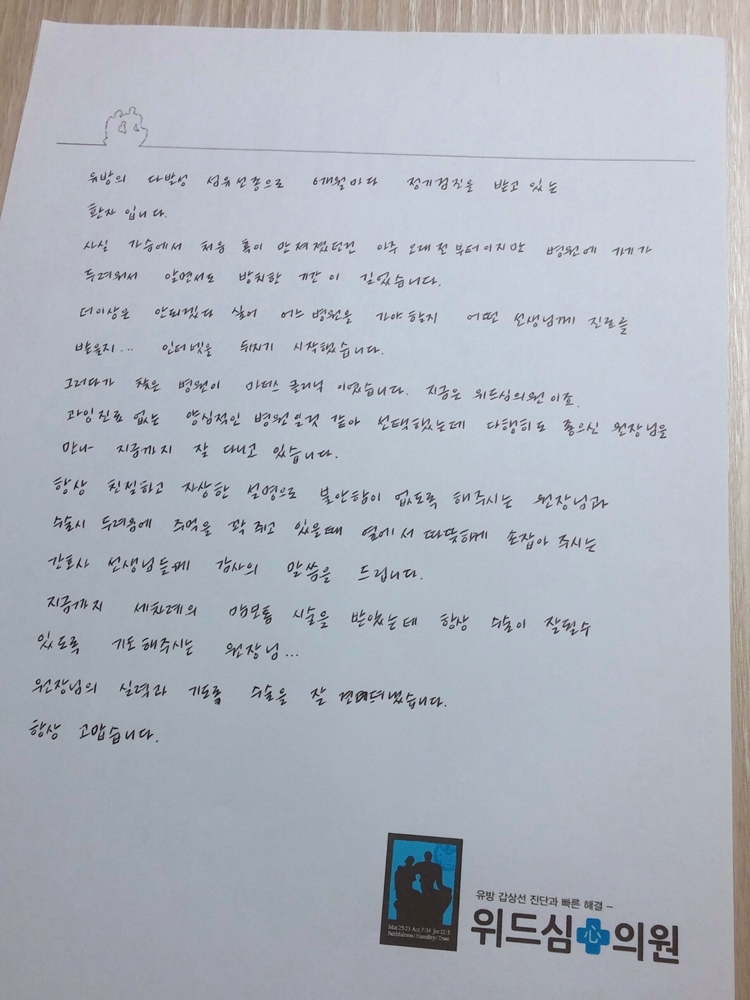 유방의 다발성 섬유선종으로 6개월마다 정기검진을 받고 있는
환자 입니다.
사실 가슴에서 처음 혹이 만져졌던건 아주 오래전부터이지만 병원에 가기가
두려워서 알면서도 방치한 기간이 길었습니다.
더이상은 안되겠다 싶어 어느병원을 가야할지 어떤 선생님께 진료를
받을지... 인터넷을 뒤지기 시작했습니다.
그러다가 찾은 병원이 마더스 클리닉 이었습니다. 지금은 위드심의원이죠.
과잉진료 없는 양심적인 병원일것 같아 선택했는데 다행히도 좋으신 원장님을
만나 지금까지 잘 다니고 있습니다.
항상 친절하고 자상한 설명으로 불안함이 없도록 해주시는 원장님과
수술시 두려움에 주먹을 꽉 쥐고 있을때 옆에서 따뜻하게 손잡아 주시는
간호사 선생님들께 감사의 말씀을 드립니다.
지금까지 세차례의 맘모톰 시술을 받았는데 항상 수술이 잘될수
있도록 기도해주시는 원장님...
원장님의 실력과 기도로 수술을 잘 견뎌냈습니다.
항상 고맙습니다.
유방 갑상선 진단과 빠른 해결 –
위드심 心 의원